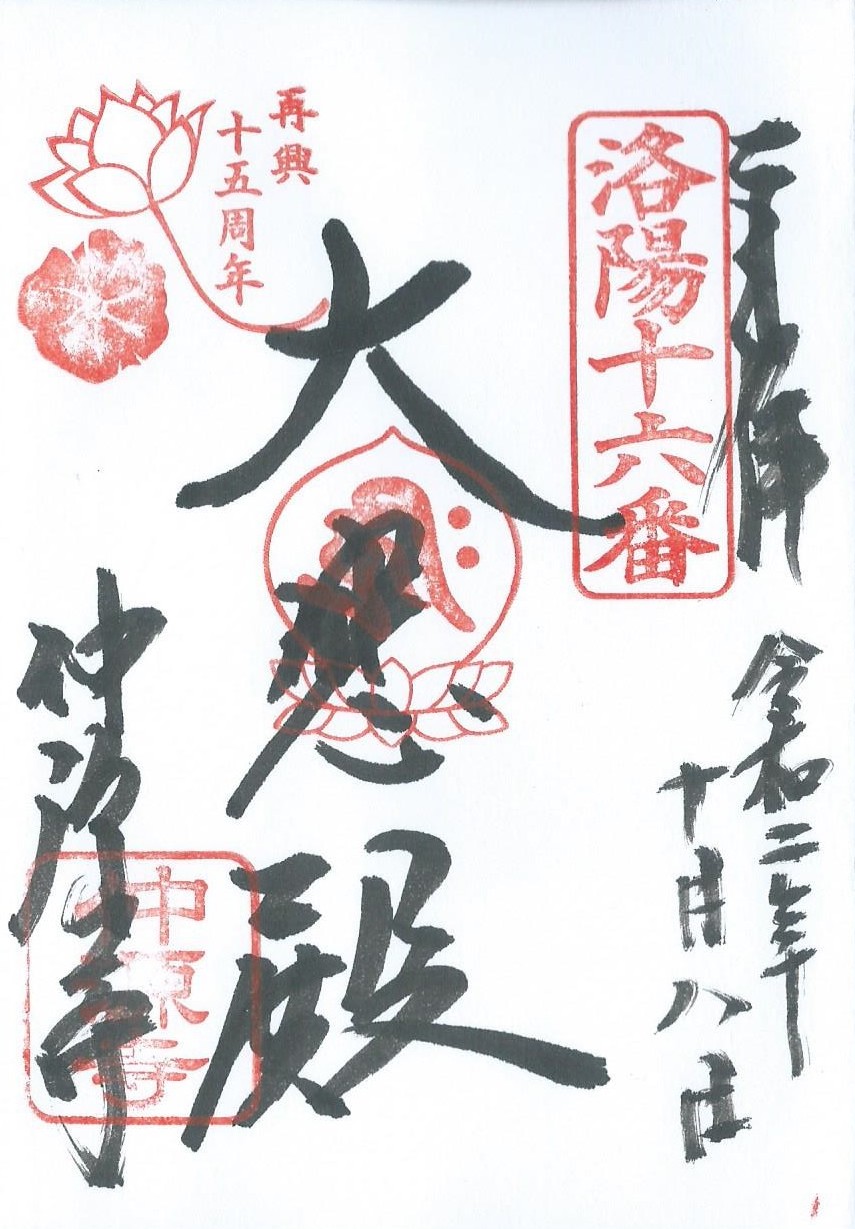 奉拝
令和二年
十月八日
洛陽十六番
大悲殿
再興
十五周年
仲源寺
仲源寺